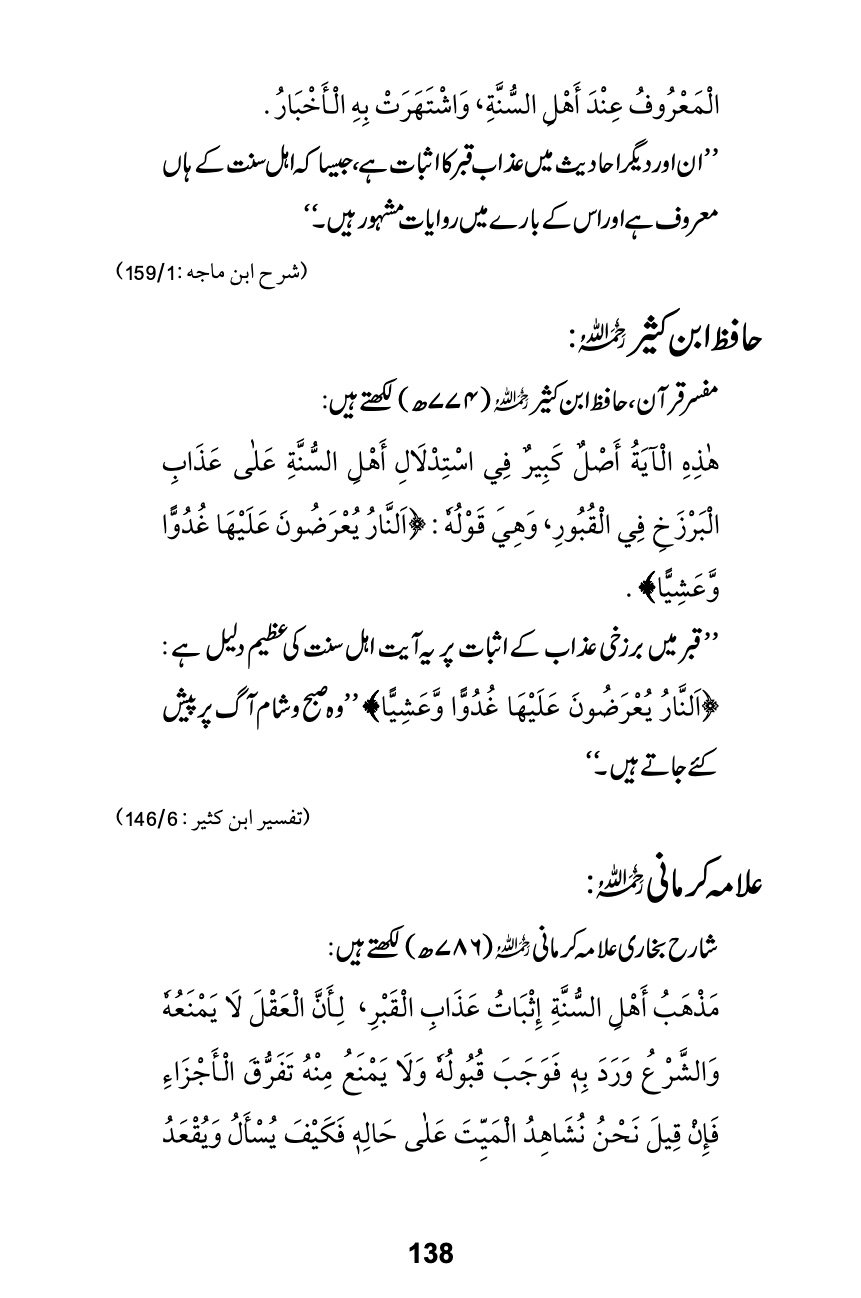 الْمَعْرُوفُ عِنْدَ أَهْلِ السُّنَّةِ، وَاشْتَهَرَتْ بِهِ الْأَخْبَارُ .
’’ان اور دیگر احادیث میں عذاب قبر کا اثبات ہے، جیسا کہ اہل سنت کے ہاں
معروف ہے اور اس کے بارے میں روایات مشہور ہیں۔‘‘
(شرح ابن ماجه :159/1)
حافظ ابن کثیر رحمہ اللہ :
مفسر قرآن، حافظ ابن کثیر رحمہ اللہ (۷۷۴ھ) لکھتے ہیں:
هٰذِهِ الْآيَةُ أَصْلٌ كَبِيرٌ فِي اسْتِدْلَالِ أَهْلِ السُّنَّةِ عَلٰى عَذَابِ
الْبَرْزَخِ فِي الْقُبُورِ، وَهِيَ قَوْلُهٗ : ﴿اَلنَّارُ يُعْرَضُونَ عَلَيْهَا غُدُوًّا
وَّعَشِيًّا﴾ .
’’قبر میں برزخی عذاب کے اثبات پر یہ آیت اہل سنت کی عظیم دلیل ہے :
﴿اَلنَّارُ يُعْرَضُونَ عَلَيْهَا غُدُوًّا وَّعَشِيًّا﴾ ’’وہ صبح و شام آگ پر پیش
کئے جاتے ہیں۔‘‘
(تفسير ابن كثير : 146/6)
علامہ کرمانی رحمہ اللہ :
شارح بخاری علامہ کرمانی رحمہ اللہ (۷۸۶ھ) لکھتے ہیں:
مَذْهَبُ أَهْلِ السُّنَّةِ إِثْبَاتُ عَذَابِ الْقَبْرِ، لِأَنَّ الْعَقْلَ لَا يَمْنَعُهٗ
وَالشَّرْعُ وَرَدَ بِهٖ فَوَجَبَ قُبُولُهٗ وَلَا يَمْنَعُ مِنْهُ تَفَرُّقَ الْأَجْزَاءِ
فَإِنْ قِيلَ نَحْنُ نُشَاهِدُ الْمَيِّتَ عَلٰى حَالِهٖ فَكَيْفَ يُسْأَلُ وَيُقْعَدُ
138